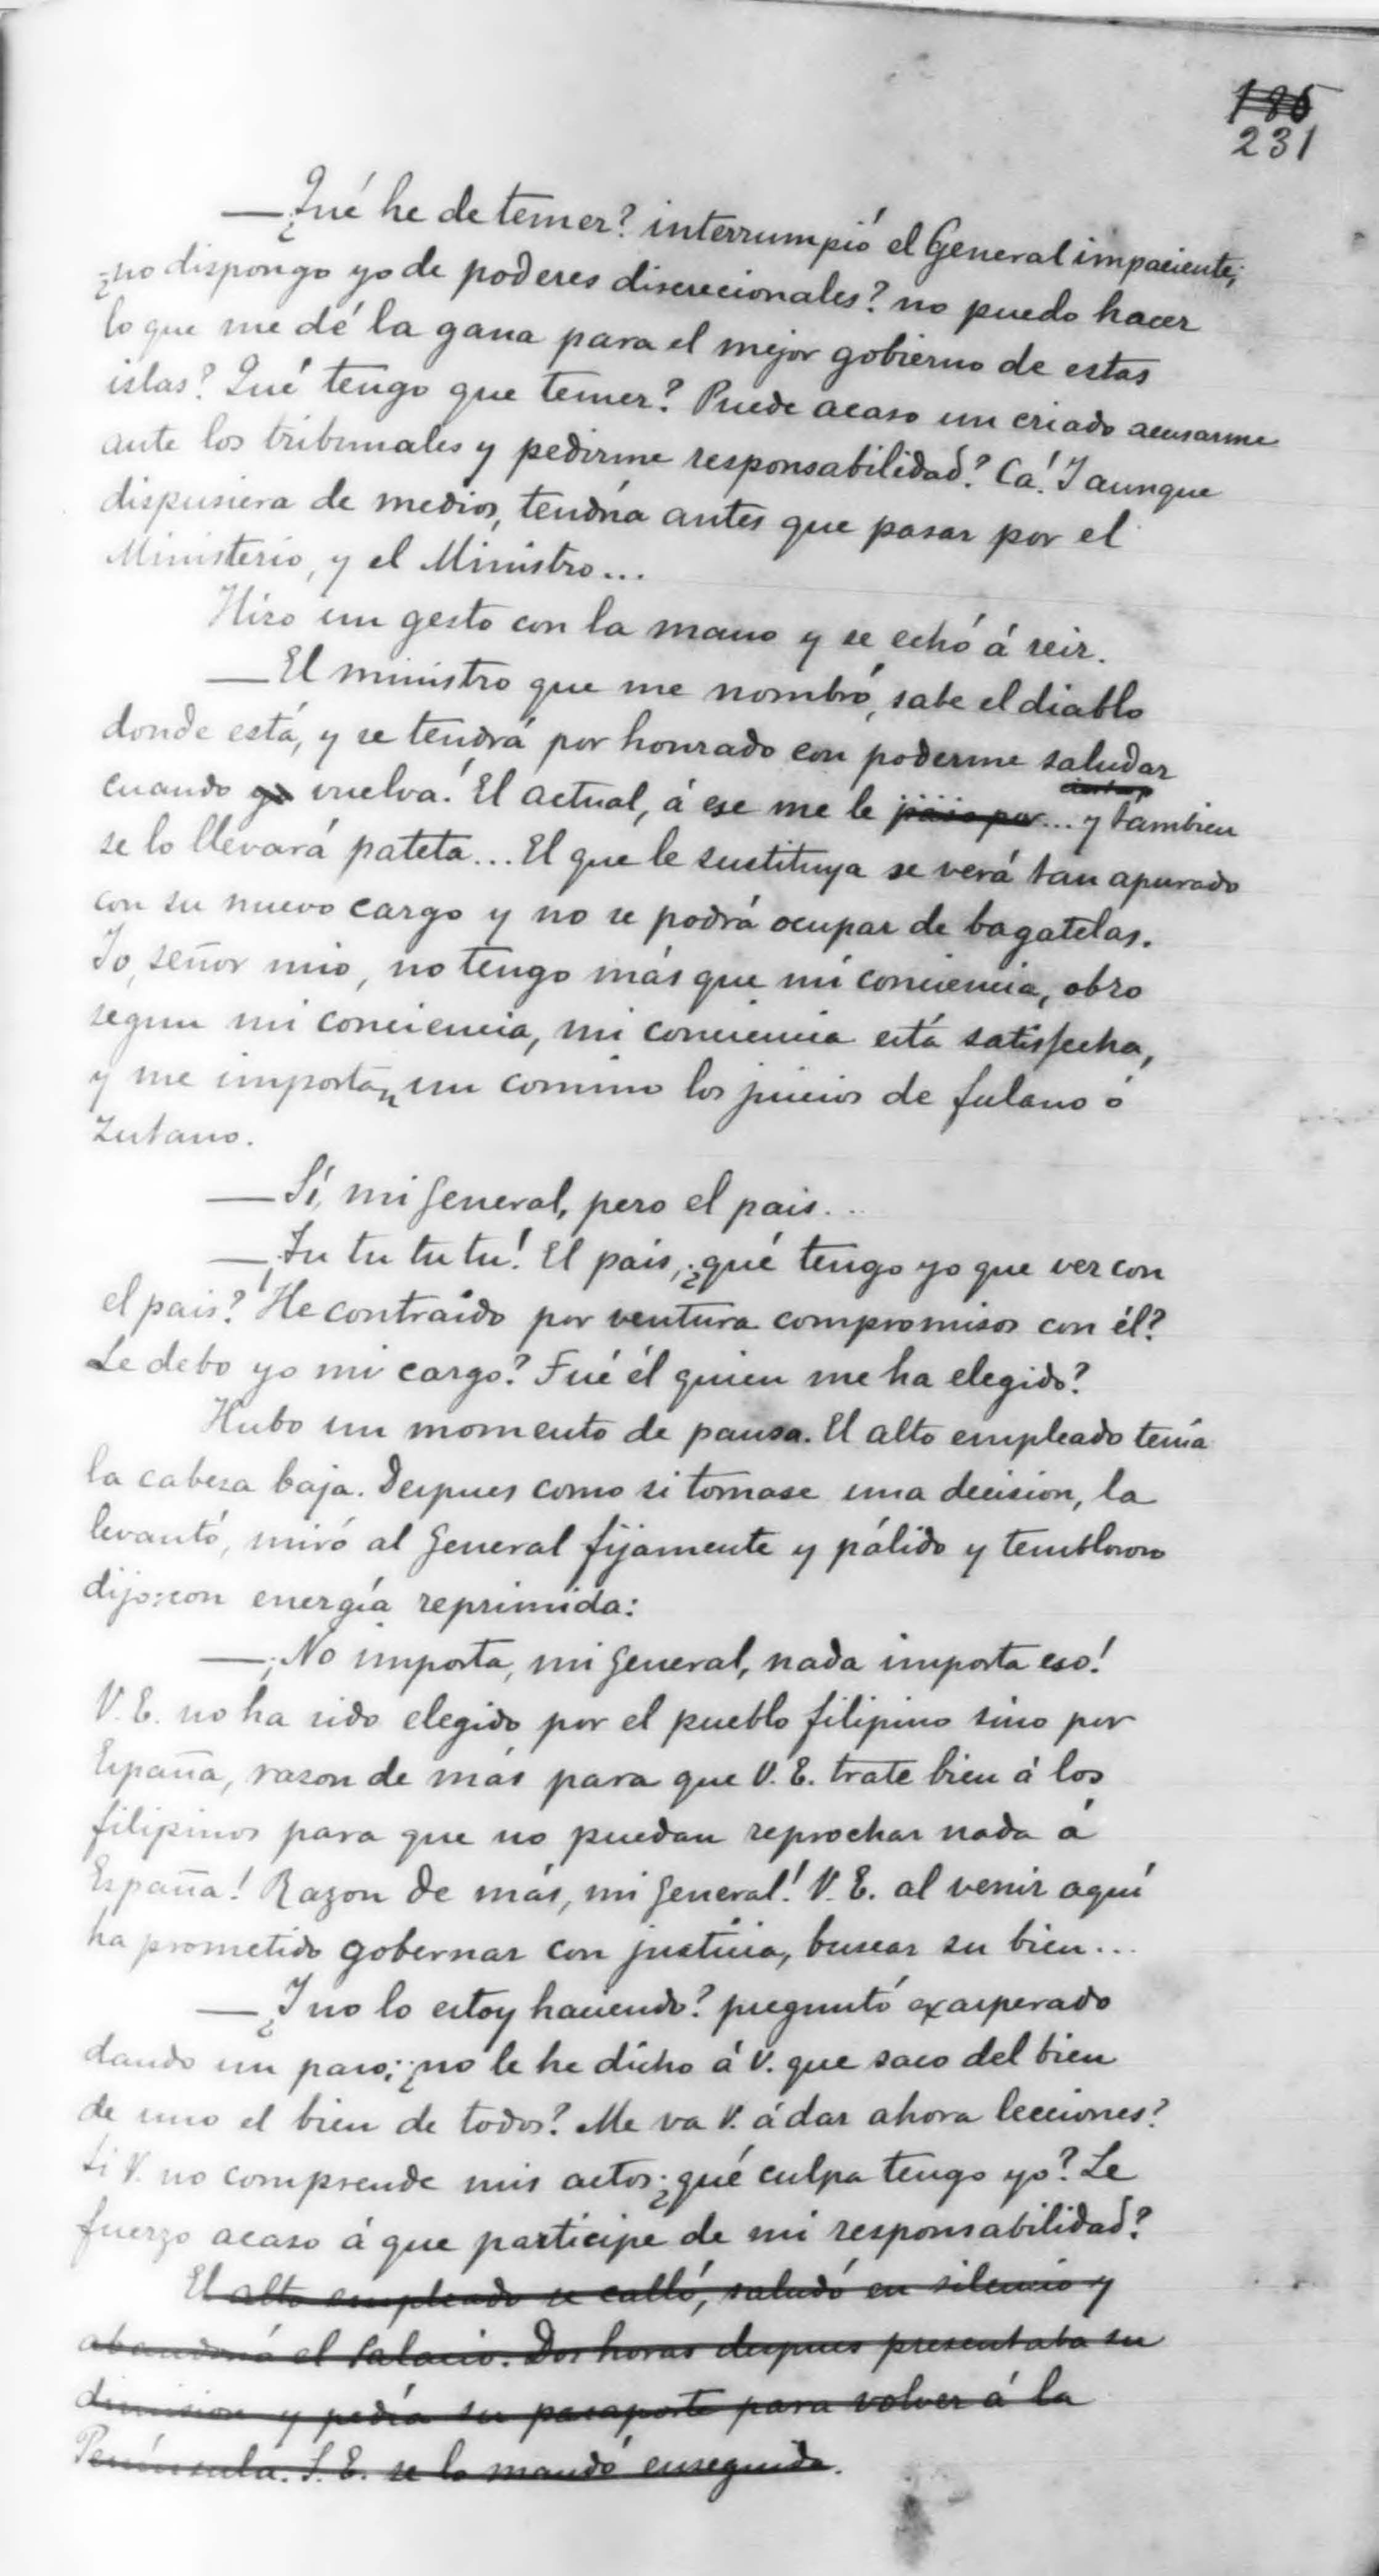 186
231
—¿Qué he de temer? interrumpió el General impaciente;
¿no dispongo yo de poderes discrecionales? no puedo hacer
lo que me dé la gana para el mejor gobierno de estas
islas? Qué tengo que temer? Puede acaso un criado acusarme
ante los tribunales y pedirme responsabilidad? Cá! Y aunque
dispusiera de medios, tendría antes que pasar por el
Ministerio, y el Ministro...
Hizo un gesto con la mano y se echó á reir.
—El ministro que me nombró, sabe el diablo
donde está, y se tendrá por honrado con poderme saludar
cuando yo vuelva! El actual, á ese me le paso por... y tambien
se lo llevará pateta... El que le sustituya se verá tan apurado
con su nuevo cargo y no se podrá ocupar de bagatelas.
Yo, señor mio, no tengo más que mi conciencia, obro
segun mi conciencia, mi conciencia está satisfecha,
y me importan un comino los juicios de fulano ó
zutano.
—Sí, mi General, pero el pais...
—¡Tu tu tu tu! El pais, ¿qué tengo yo que ver con
el pais? He contraido por ventura compromisos con él?
Le debo yo mi cargo? Fué él quien me ha elegido?
Hubo un momento de pausa. El alto empleado tenía
la cabeza baja. Despues como si tomase una decision, la
levantó, miró al General fijamente y pálido y tembloroso
dijo con energía reprimida:
—¡No importa, mi General, nada importa eso!
V. E. no ha sido elegido por el pueblo filipino sino por
España, razon de más para que V. E. trate bien á los
filipinos para que no puedan reprochar nada á
España! Razon de más, mi General! V. E. al venir aquí
ha prometido gobernar con justicia, buscar su bien...
—¿Y no lo estoy haciendo? preguntó exasperado
dando un paso; ¿no le he dicho á V. que saco del bien
de uno el bien de todos? Me va V. á dar ahora lecciones?
Si V. no comprende mis actos ¿qué culpa tengo yo? Le
fuerzo acaso á que participe de mi responsabilidad?
El alto empleado se calló, saludó en silencio y
abandonó el Palacio. Dos horas despues presentaba su
dimision y pedía su pasaporte para volver á la
Península. S. E. se lo mandó enseguida.